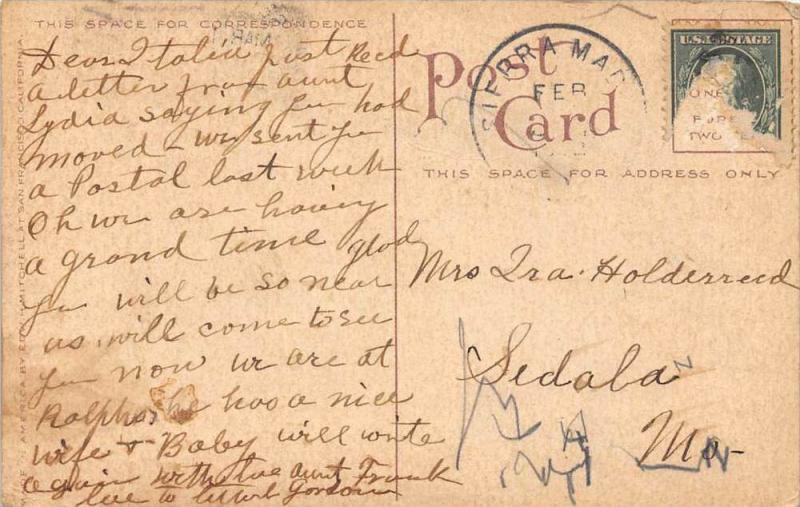 THIS SPACE FOR CORRESPONDENCE
Dear Italia just Recd
a letter from aunt
Lydia saying you had
moved - we sent you
a Postal last week
Oh we are having
a grand time glad
you will be so near
us, will come to see
you now we are at
Ralphs, he has a nice
wife & Baby will write
again with love aunt Frank
love to
Post
Card
SIERRA MAD
FEB
U.S. POSTAGE
ONE
FORE
TWO
THIS SPACE FOR ADDRESS ONLY
Mrs Ira Holderreed
Sedalia
Mo-
MADE IN AMERICA BY EDW. H. MITCHELL AT SAN FRANCISCO CALIFORNIA